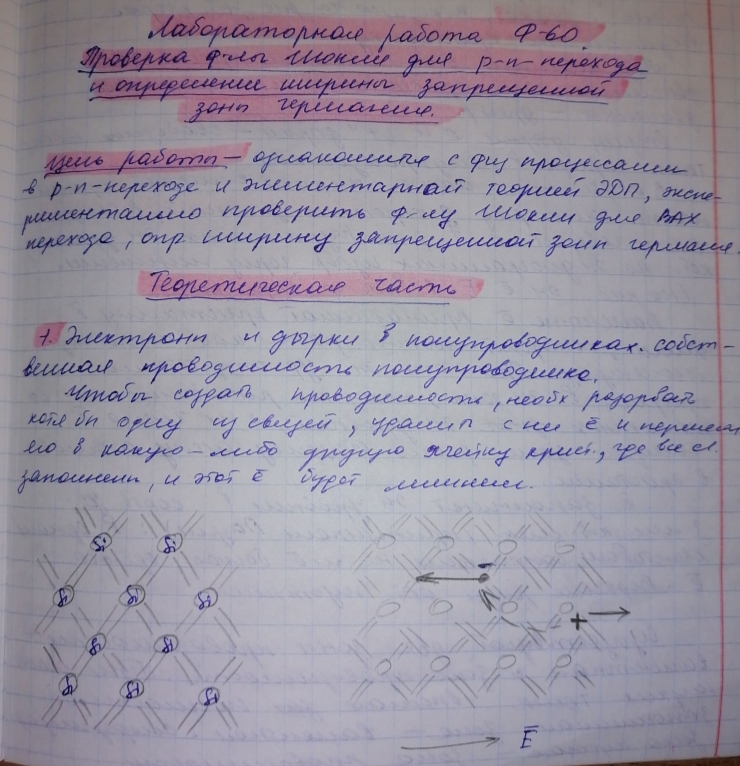 Лабораторная работа Ф-60
Проверка ф-лы Шокли для p-n-перехода
и определение ширины запрещенной
зоны германия.
Цель работы – ознакомиться с физ процессами
в p-n-переходе и элементарной теорией ЭДП, экспе-
риментально проверить ф-лу Шокли для ВАХ
перехода, опр ширину запрещенной зоны германия.
Теоретическая часть
1. Электроны и дырки в полупроводниках. собст-
венная проводимость полупроводника.
Чтобы создать проводимость, необх разорвать
хотя бы одну из связей, удалить с нее ē и перенести
его в какую-либо другую ячейку крист., где все св.
заполнены, и этот ē будет лишним.
Si Si
Si Si Si
Si Si
Si Si Si
-
+
E̅